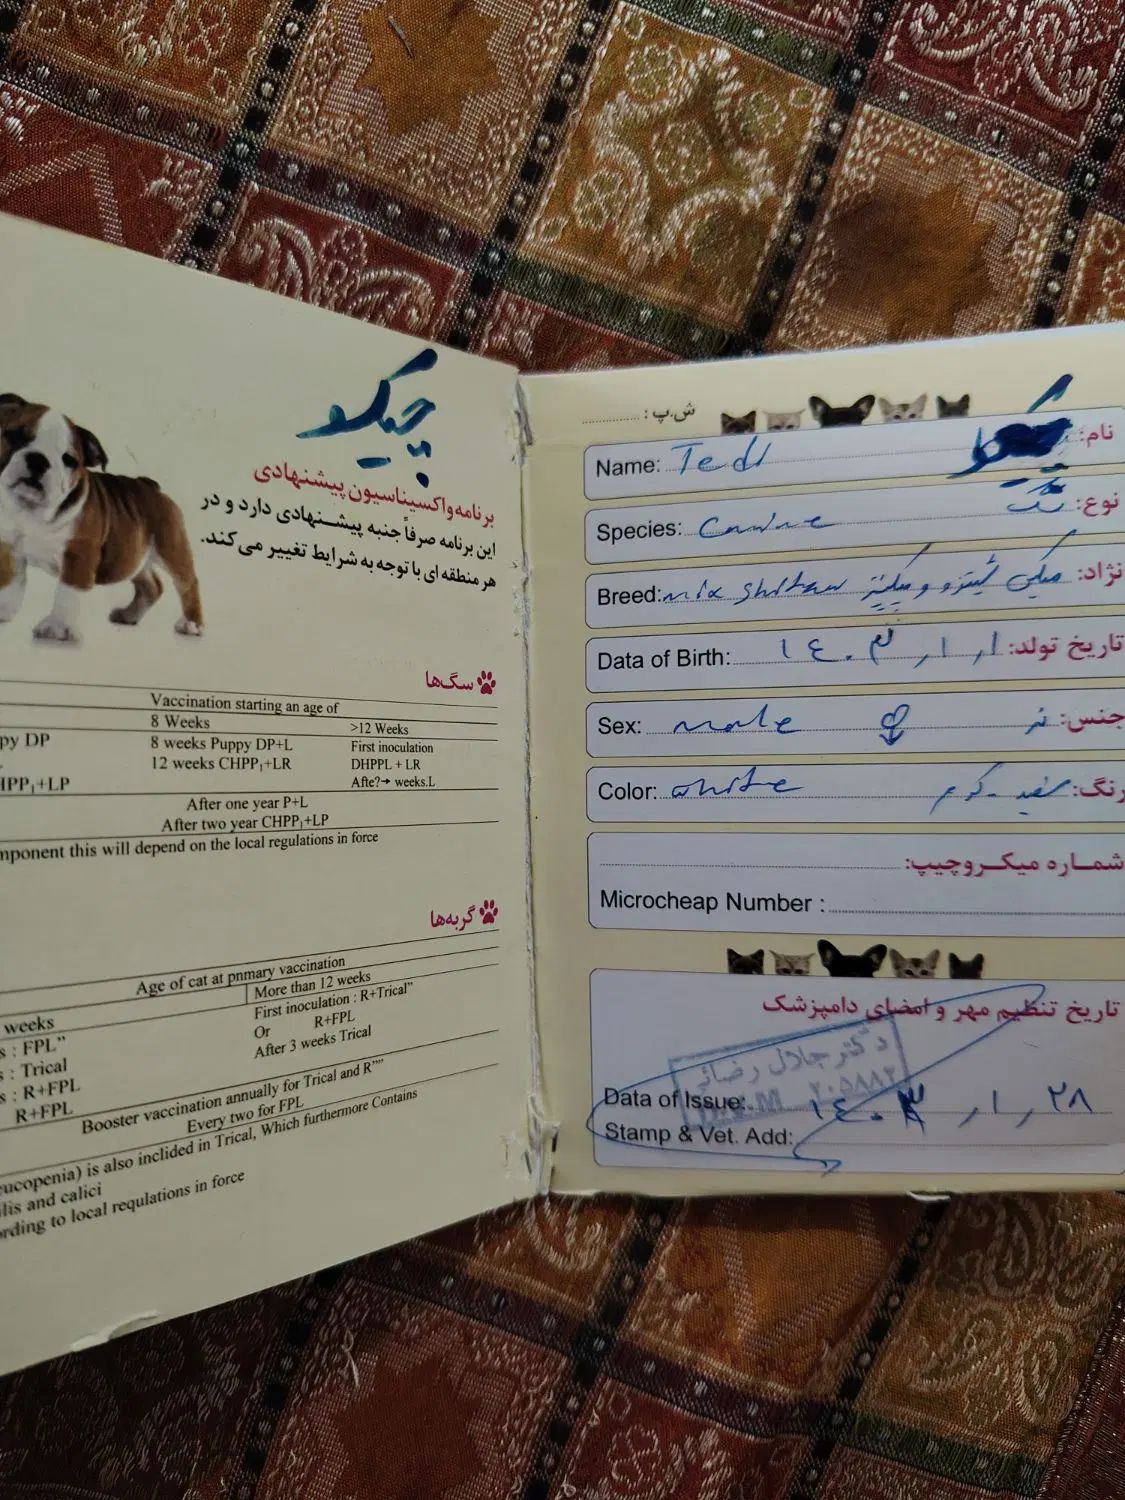 چیکو
برنامه واکسیناسیون پیشنهادی
این برنامه صرفاً جنبه پیشنهادی دارد و در
هر منطقه ای با توجه به شرایط تغییر می‌کند.
سگ‌ها
Vaccination starting an age of
8 Weeks >12 Weeks
py DP 8 weeks Puppy DP+L First inoculation
12 weeks CHPP₁+LR DHPPL + LR
HPP₁+LP Afte?→ weeks.L
After one year P+L
After two year CHPP₁+LP
mponent this will depend on the local regulations in force
گربه‌ها
Age of cat at pnmary vaccination
weeks More than 12 weeks
s : FPL” First inoculation : R+Trical”
s : Trical Or R+FPL
s : R+FPL After 3 weeks Trical
R+FPL
Booster vaccination annually for Trical and R””
Every two for FPL
eucopenia) is also inclided in Trical, Which furthermore Contains
ilis and calici
ording to local requlations in force
ش.پ :
Name: Tedi نام:
Species: نوع: سگ
Breed: mix نژاد: میکس شیتزو و
Data of Birth: تاریخ تولد: ۱۴۰۳/۱/۱
Sex: male جنس: نر
Color: white رنگ: سفید - کرم
شماره میکروچیپ:
Microcheap Number :
تاریخ تنظیم مهر و امضای دامپزشک
دکتر جلال رضائی
۲۰۵۸۸۲
Data of Issue: ۱۴۰۳/۱/۲۸
Stamp & Vet. Add: